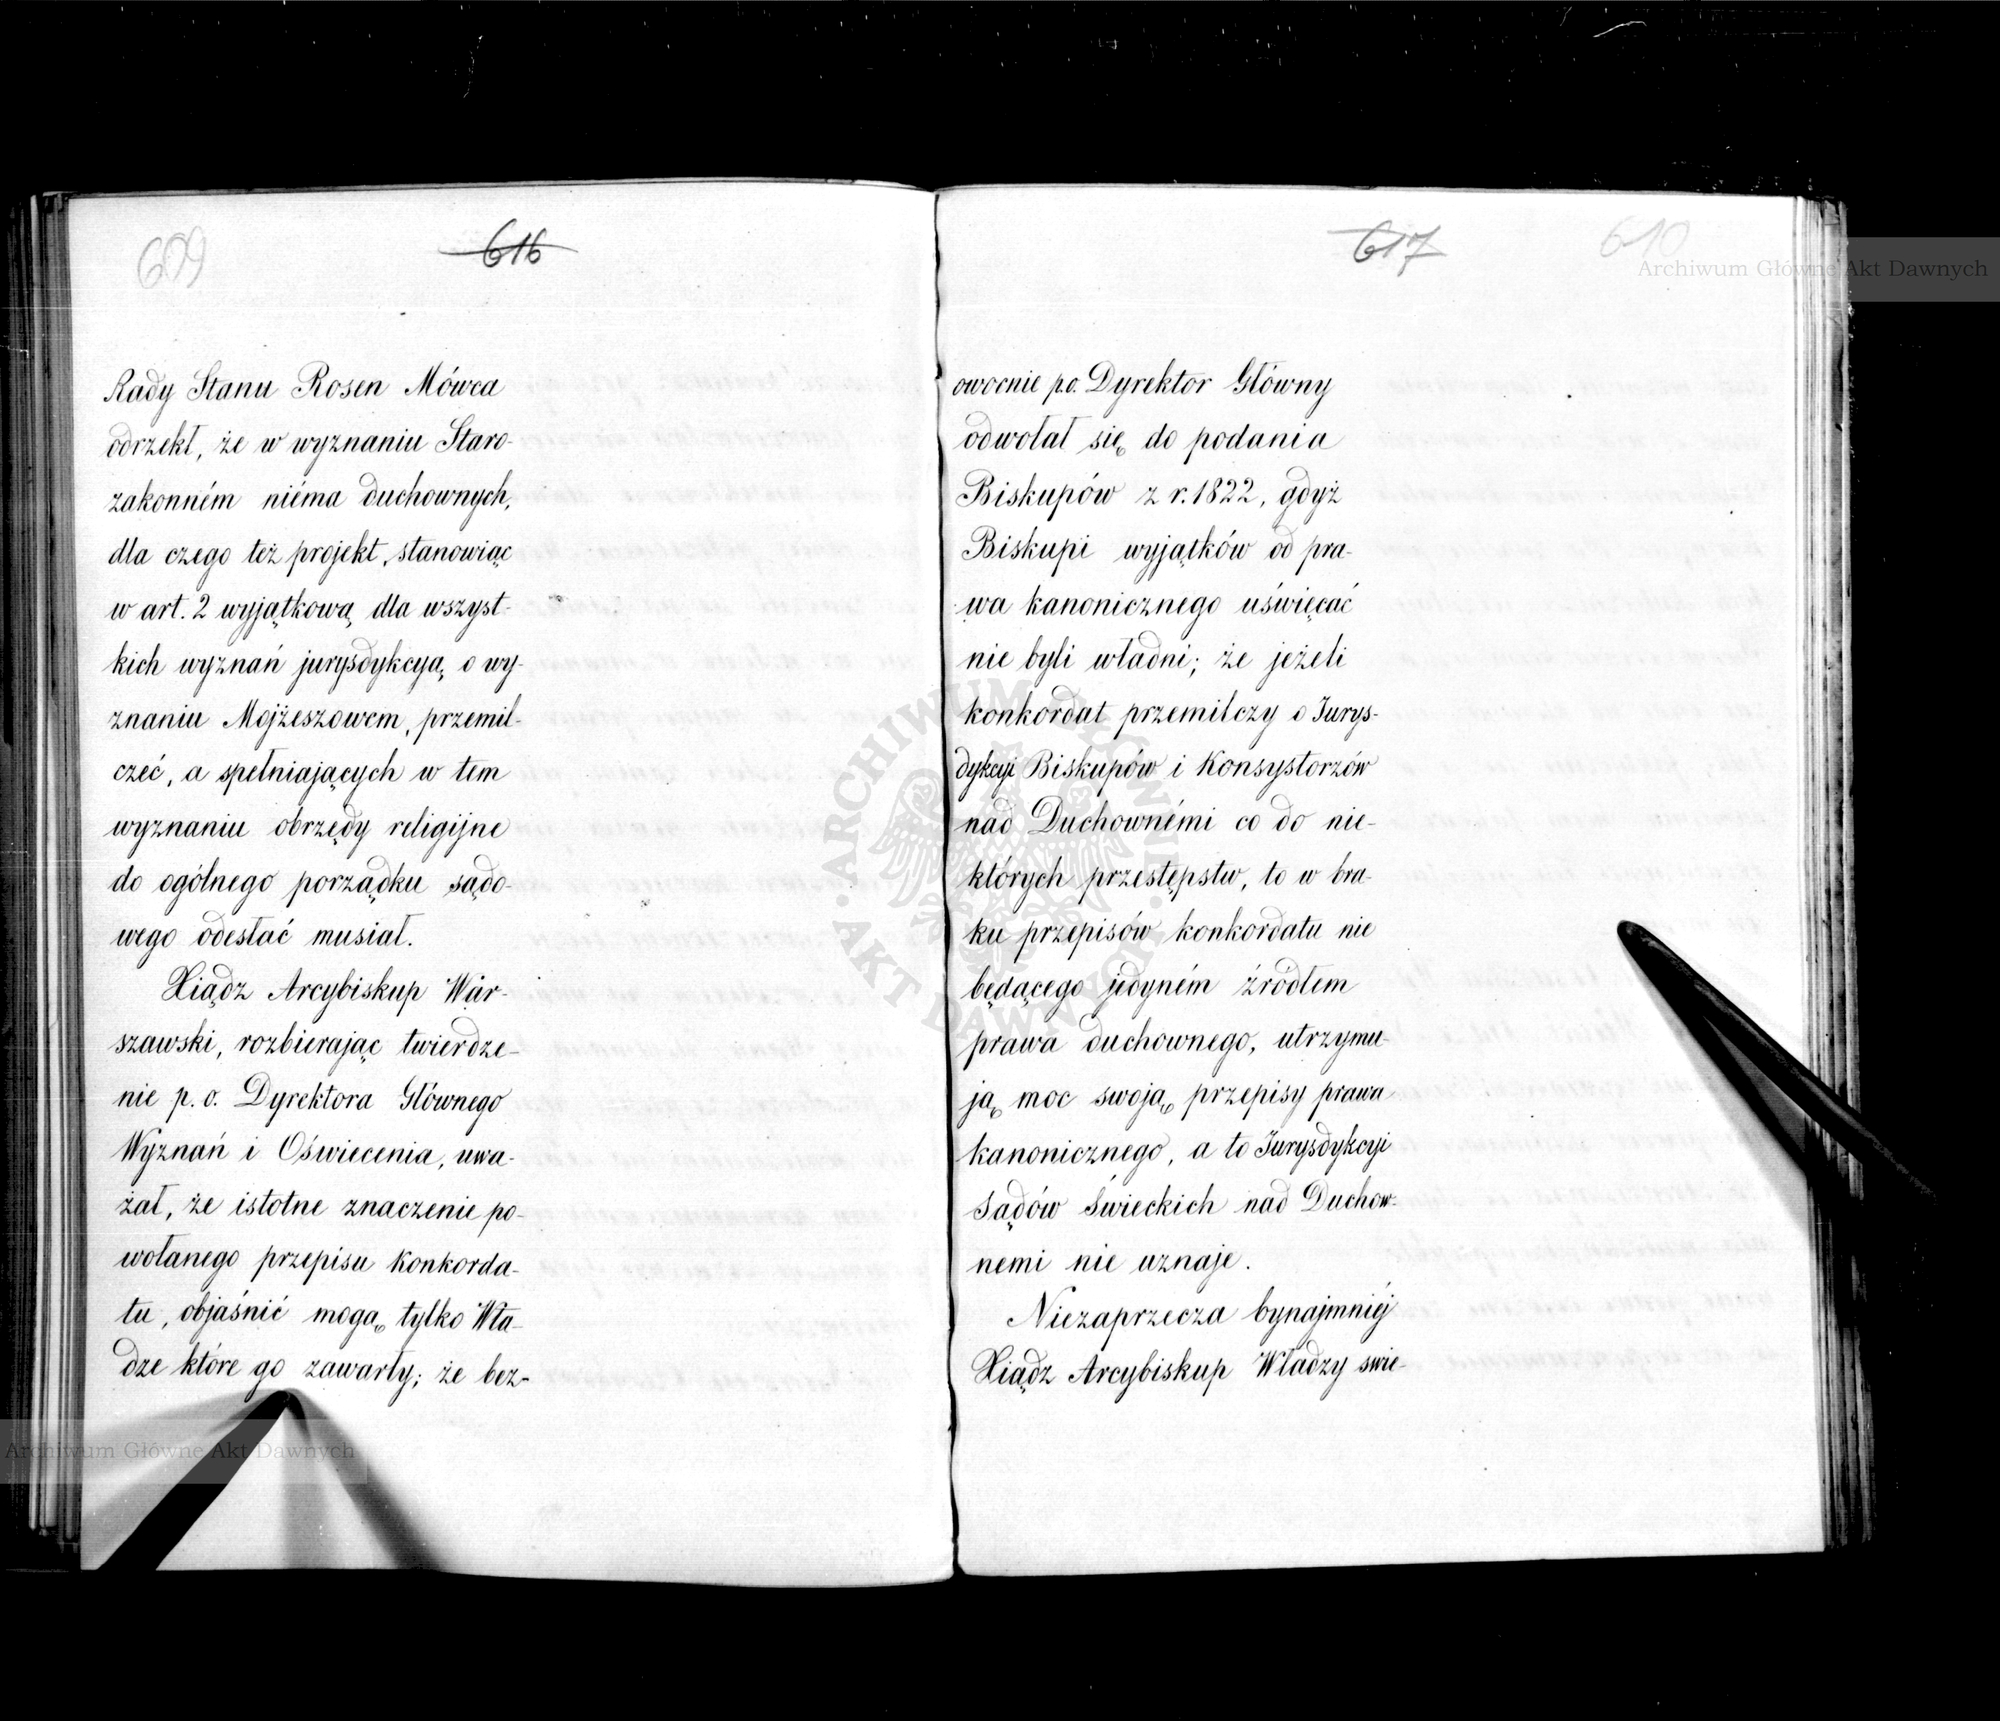 609
616
Rady Stanu Rosen Mówca
odrzekł, że w wyznaniu Staro-
zakonném niéma duchownych,
dla czego też projekt, stanowiąc
w art. 2 wyjątkową dla wszyst-
kich wyznań jurysdykcyą, o wy-
znaniu Mojżeszowem, przemil-
czeć, a spełniających w tem
wyznaniu obrzędy religijne
do ogólnego porządku sądo-
wego odesłać musiał.
Xiądz Arcybiskup War-
szawski, rozbierając twierdze-
nie p. o. Dyrektora Głównego
Wyznań i Oświecenia, uwa-
żał, że istotne znaczenie po-
wołanego przepisu Konkorda-
tu, objaśnić mogą tylko Wła-
dze które go zawarły; że bez-
617
610
owocnie p.o. Dyrektor Główny
odwołał się do podania
Biskupów z r. 1822, gdyż
Biskupi wyjątków od pra-
wa kanonicznego uświęcać
nie byli władni; że jeżeli
konkordat przemilczy o Jurys-
dykcyi Biskupów i Konsystorzów
nad Duchownémi co do nie-
których przestępstw, to w bra-
ku przepisów konkordatu nie
będącego jedyném źródłem
prawa duchownego, utrzymu-
ją moc swoją przepisy prawa
kanonicznego, a to Jurysdykcyi
Sądów Świeckich nad Duchow-
nemi nie uznaje.
Niezaprzecza bynajmniéj
Xiądz Arcybiskup Władzy świe-
Archiwum Główne Akt Dawnych
Archiwum Główne Akt Dawnych
ARCHIWUM GŁÓWNE AKT DAWNYCH